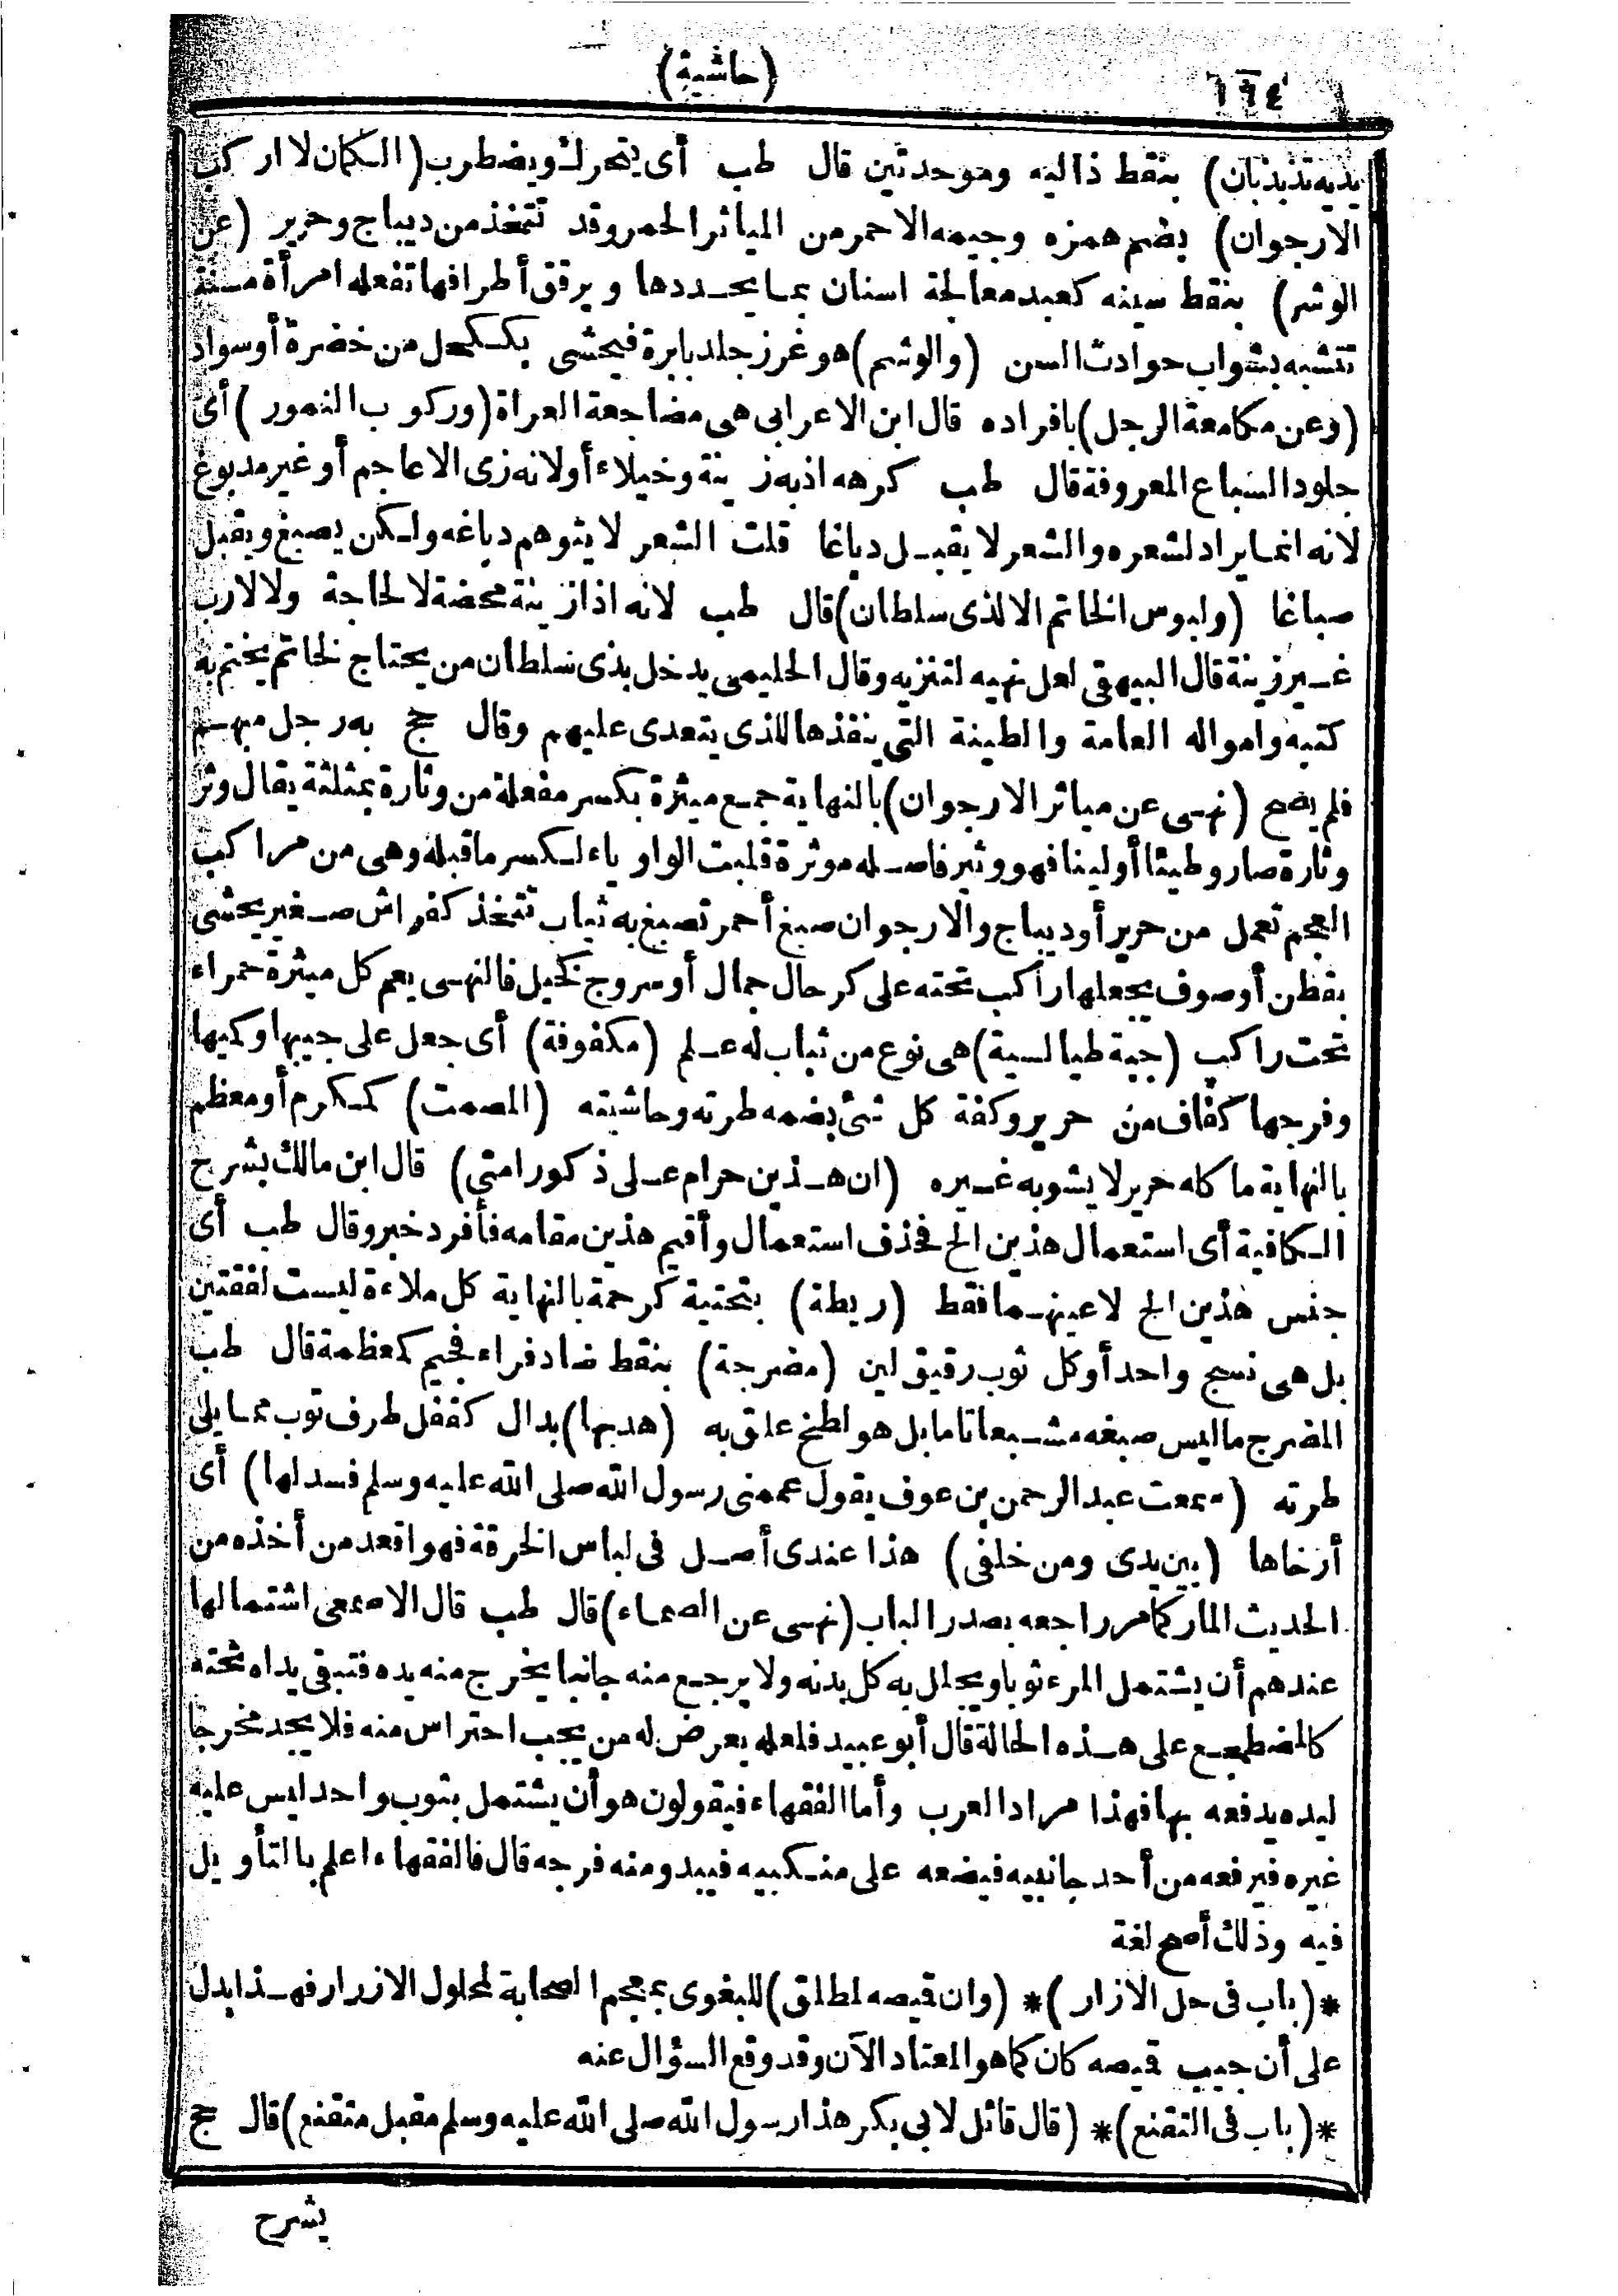 ١٩٤
(حاشية)
يديه تذبذبان) بنقط ذاليه وموحدتين قال طب أى يتحرك ويضطرب (الكمان لا اركب
الارجوان) بضم همزه وجيمه الاحمر من المياثر الحمر وقد تتخذ من ديباج وحرير (عن
الوشر) بنقط سينه كعبد معالجة اسنان بما يحددها ويرقق أطرافها تفعله امرأة مسنة
تتشبه بشواب حوادث السن (والوشم) هو غرز جلد بابرة فيحشى بككحل من خضرة أوسواد
(وعن مكامعة الرجل) بافراده قال ابن الاعرابى هى مضاجعة العراة (وركوب النمور) أى
جلود السباع المعروفة قال طب كرهه اذ به زينة وخيلاء أولانه زى الاعاجم أو غير مدبوغ
لانه انما يراد لشعره والشعر لا يقبل دباغا قلت الشعر لا يتوهم دباغه ولكن يصبغ ويقبل
صباغا (ولبوس الخاتم الا لذى سلطان) قال طب لانه اذا زينة محضة لا لحاجة ولا لارب
غير زينة قال البيهقى لعل نهيه لتنزيه وقال الحليمى يدخل بذى سلطان من يحتاج لخاتم يختم به
كتبه وامواله العامة والطينة التى ينفذها للذى يتعدى عليهم وقال حج به رجل مبهم
فلم يصح (نهى عن مياثر الارجوان) بالنهاية جمع ميثرة بكسر مفعلة من وثارة بمثلثة يقال وثر
وثارة صار وطيئا أولينا فهو وثير فاصله موثرة قلبت الواو ياء لكسر ما قبله وهى من مراكب
العجم تعمل من حرير أو ديباج والارجوان صبغ أحمر تصبغ به ثياب تتخذ كفراش صغير يحشى
بقطن أوصوف يجعلها راكب تحته على كرحال جمال أوسروج نخيل فالنهى يعم كل ميثرة حمراء
تحت راكب (جبة طيالسية) هى نوع من ثياب له علم (مكفوفة) أى جعل على جيبها وكيها
وفرجها كفاف من حرير وكفة كل شئ بضمه طرته وحاشيته (المصمت) كمكرم أو معظم
بالنهاية ما كله حرير لا يشوبه غيره (ان هذين حرام على ذكور امتى) قال ابن مالك بشرح
الكافية أى استعمال هذين الخ فحذف استعمال وأقيم هذين مقامه فأفرد خبر وقال طب أى
جنس هذين الخ لا عينهما فقط (ريطة) بتحتية كرحمة بالنهاية كل ملاءة ليست لفقتين
بل هى نسج واحد أو كل ثوب رقيق لين (مضرجة) بنقط ضاد فراء فجيم كمعظمة قال طب
المضرج ما ليس صبغه مشبعا تاما بل هو لطخ علق به (هدبها) بدال كقفل طرف ثوب مما يلى
طرته (سمعت عبد الرحمن بن عوف يقول عممنى رسول الله صلى الله عليه وسلم فسدلها) أى
أرخاها (بين يدى ومن خلفى) هذا عندى أصل فى لباس الخرقة فهو اقعد من أخذه من
الحديث المار كما مر راجعه بصدر الباب (نهى عن الصماء) قال طب قال الاصمعى اشتمالها
عندهم أن يشتمل المرء ثوبا ويجلل به كل بدنه ولا يرجع منه جانبا يخرج منه يده فتبقى يداه تحته
كالمضطجع على هذه الحالة قال أبو عبيد فلعله يعرض له من يجب احتراس منه فلا يجد مخرجا
ليده يدفعه بها فهذا مراد العرب وأما الفقهاء فيقولون هو أن يشتمل بثوب واحد ليس عليه
غيره فيرفعه من أحد جانبيه فيضعه على منكبيه فيبدو منه فرجه قال فالفقهاء اعلم بالتأويل
فيه وذلك أصح لغة
*(باب فى حل الازار)* (وان قيصه لمطلق) للبغوى بمعجم الصحابة لمحلول الازرار فهذا يدل
على أن جيب قيصه كان كما هو المعتاد الآن وقد وقع السؤال عنه
*(باب فى التقنع)* (قال قائل لابى بكر هذا رسول الله صلى الله عليه وسلم مقبل متقنع) قال حج
يشرح